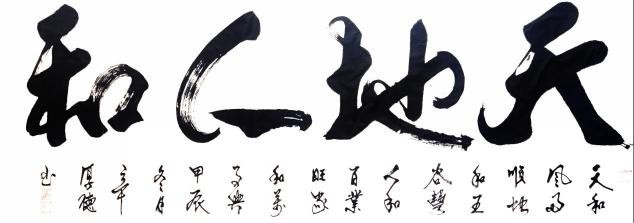 天地人和
天和
风雨
順地
和五
谷豐
人和
百業
旺家
和萬
事興
甲辰
冬月
厚德
书